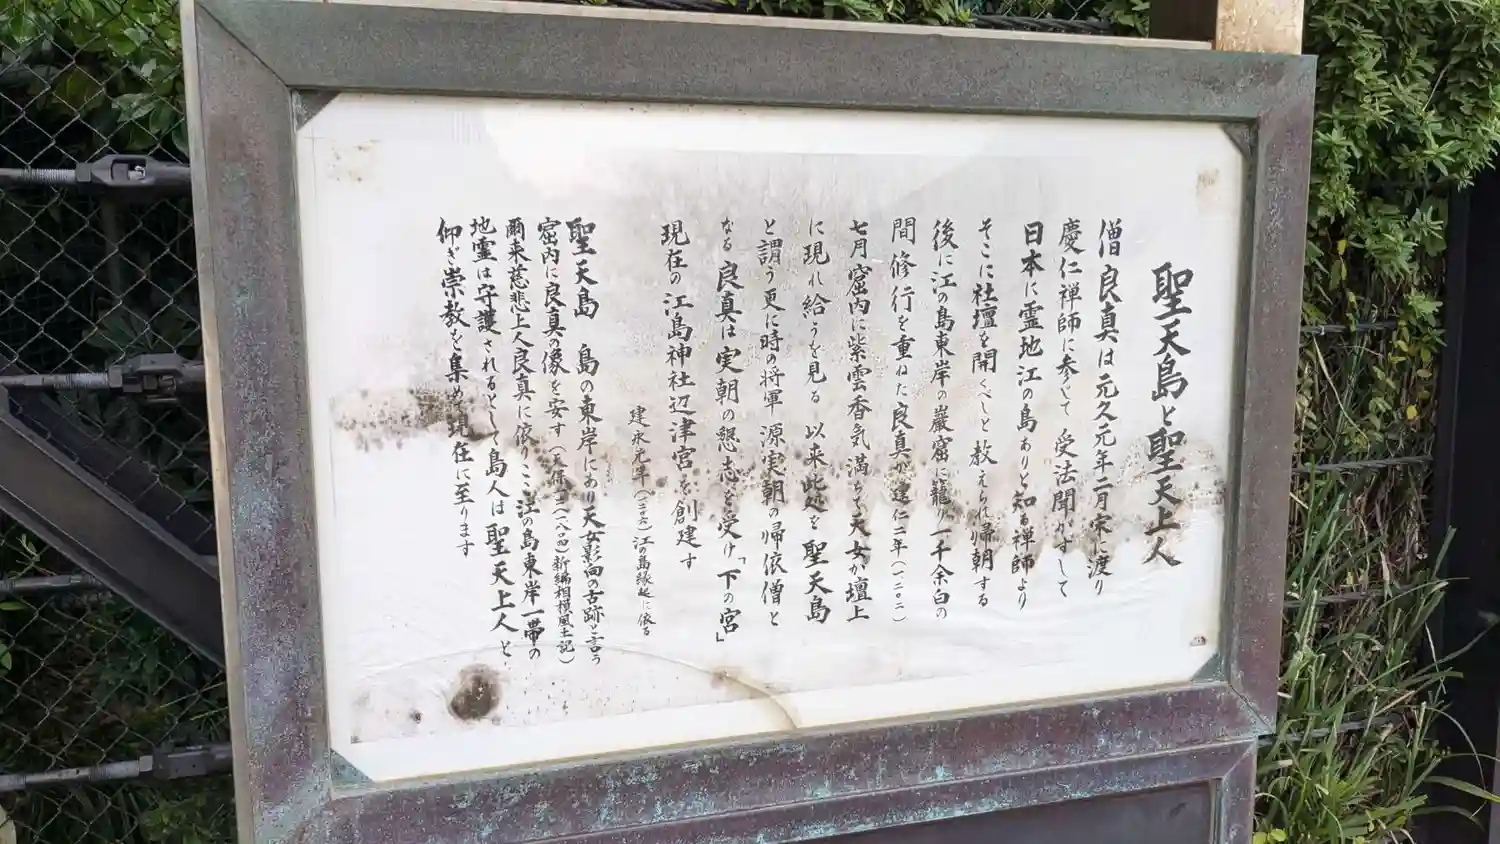 聖天島と聖天上人
僧良真は元久元年二月宋に渡り
慶仁禅師に参じて受法聞かずして
日本に霊地江の島ありと知る禅師より
そこに社壇を開くべしと教えられ帰朝する
後に江の島東岸の巌窟に籠り一千余白の
間修行を重ねた良真が建仁二年(一二〇二)
七月窟内に紫雲香気満ちて天女が壇上
に現れ給うを見る 以来此処を聖天島
と謂う更に時の将軍源実朝の帰依僧と
なる良真は実朝の懇志を受け「下の宮」
現在の江島神社辺津宮を創建す
建永元年(一二〇六)江の島縁起に依る
聖天島 島の東岸にあり天女影向の古跡と言う
窟内に良真の像を安す(一八四)新編相模風土記)
爾来慈悲上人良真に依りここ江の島東岸一帯の
地霊は守護されるとして島人は聖天上人と
仰ぎ崇教を集め現在に至ります